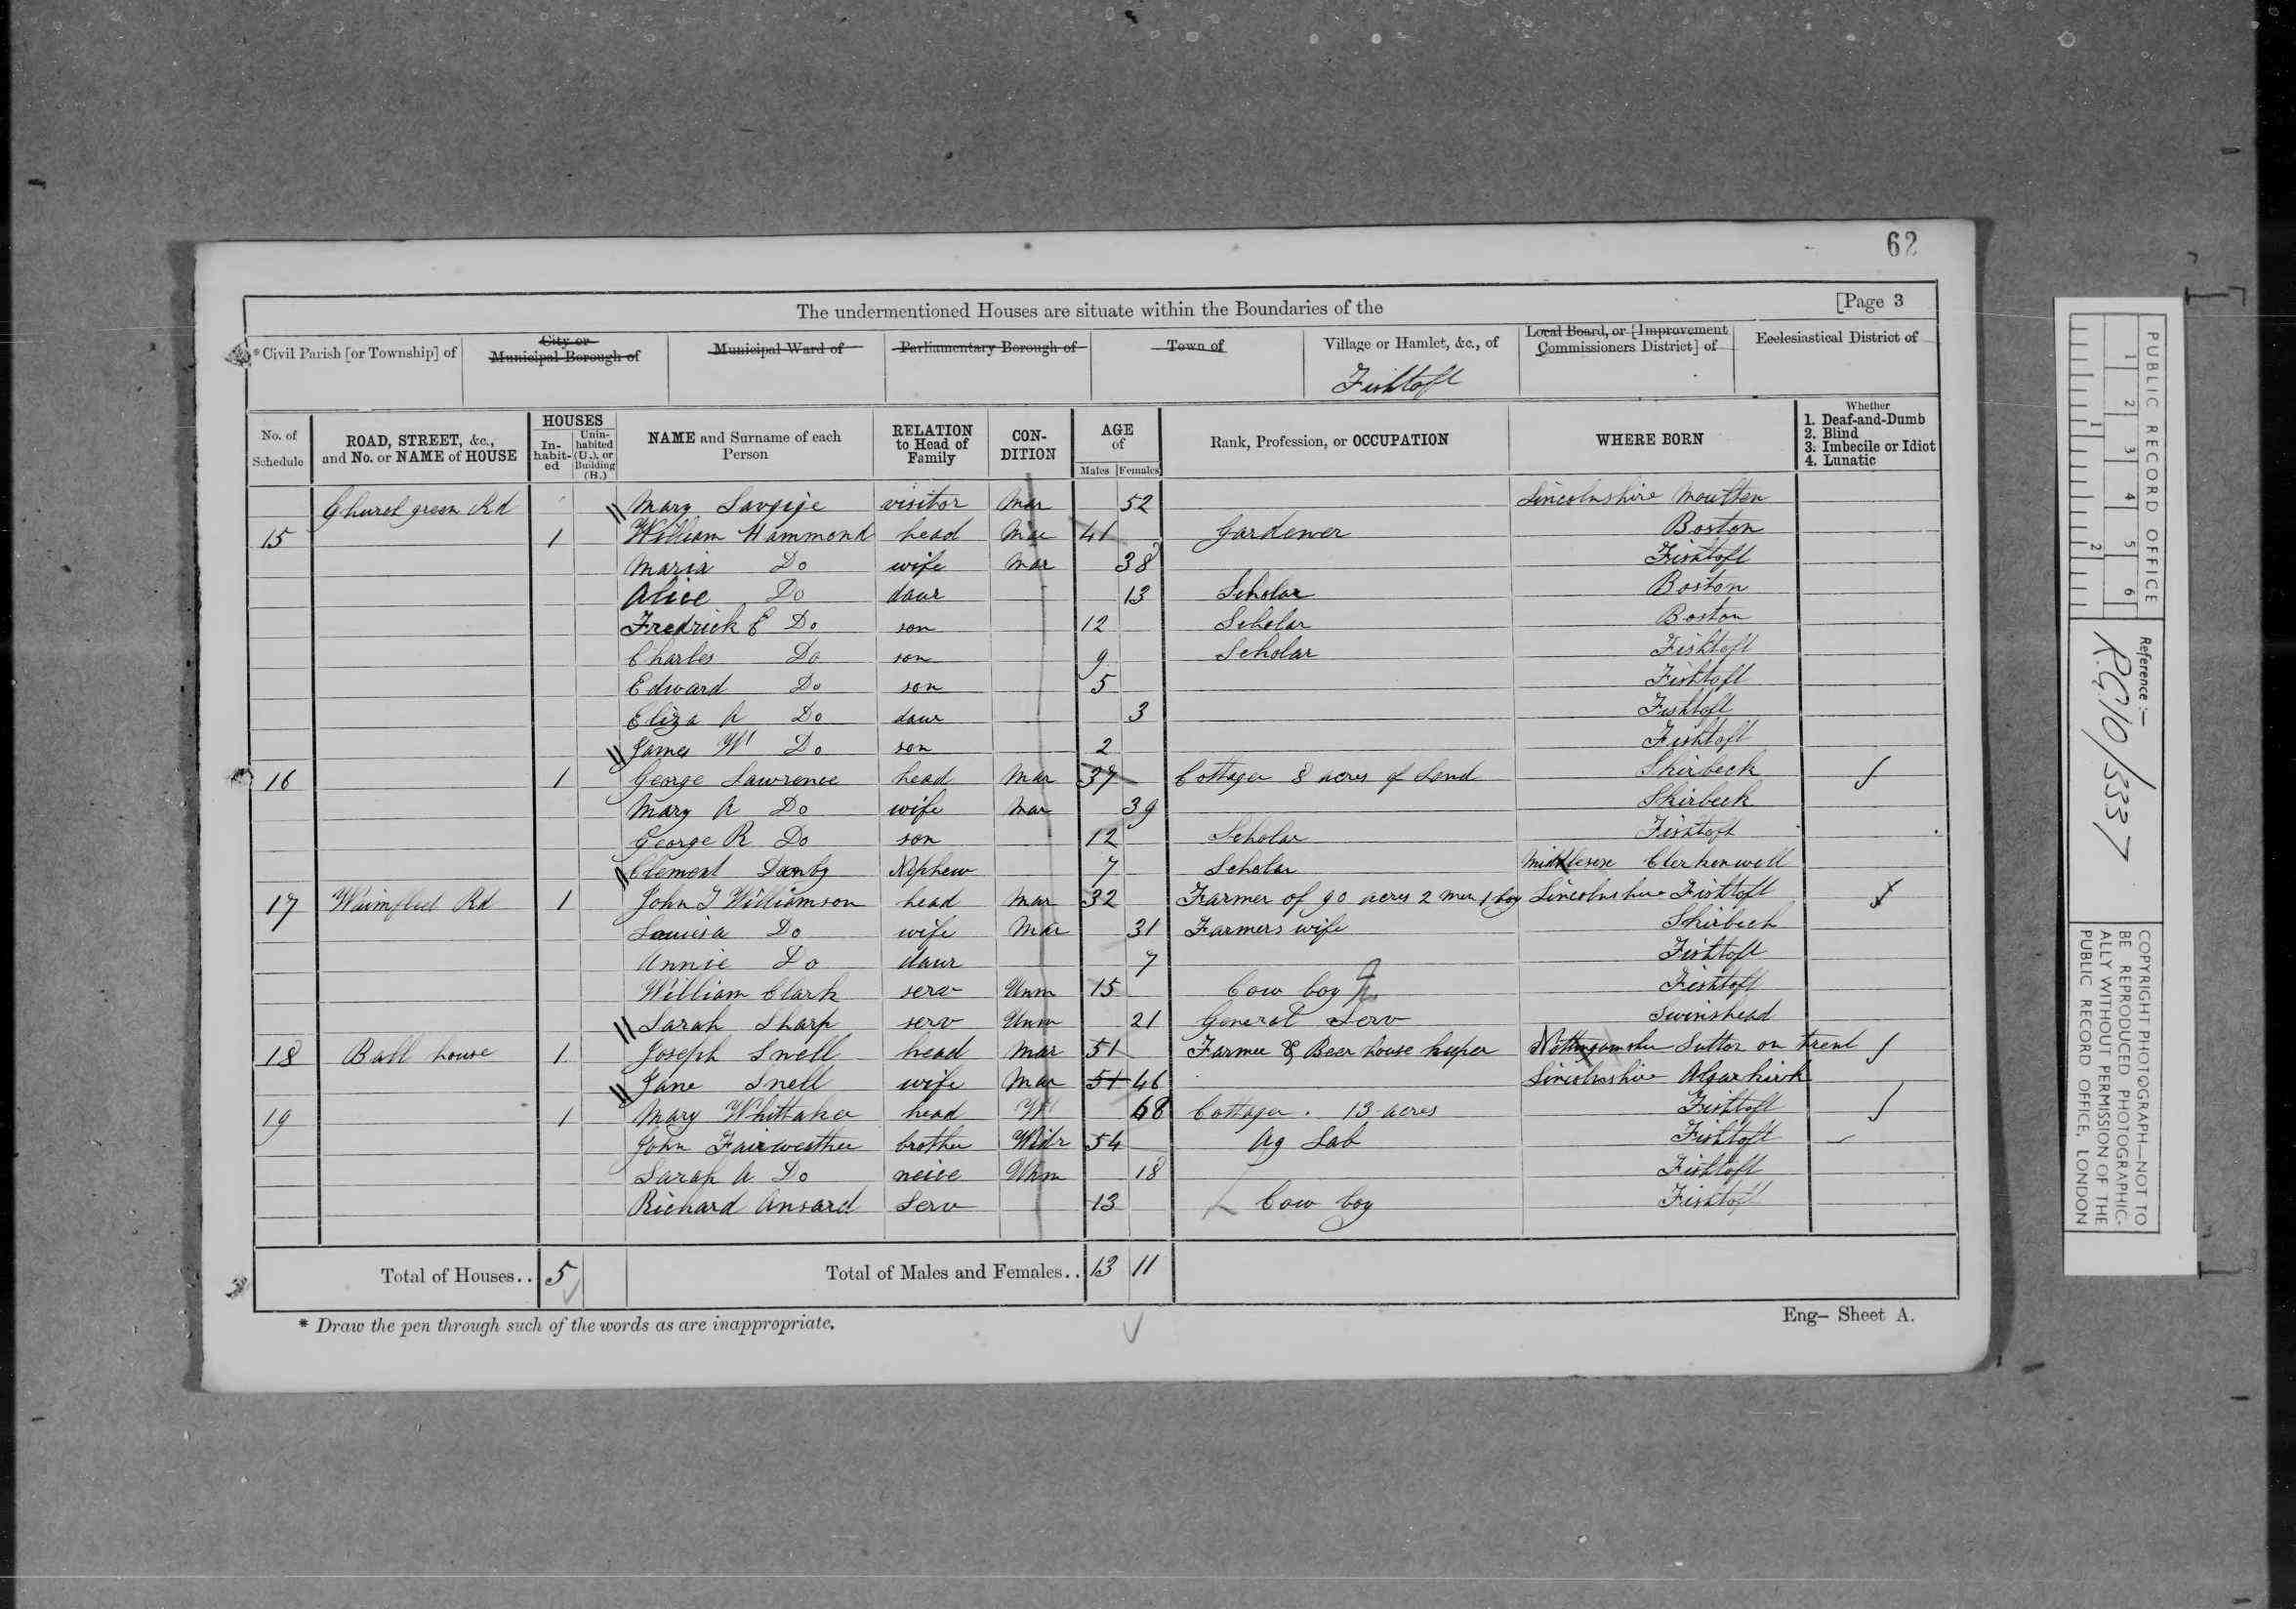 62
The undermentioned Houses are situate within the Boundaries of the [Page 3
* Civil Parish [or Township] of
City or Municipal Borough of
Municipal Ward of
Parliamentary Borough of
Town of
Village or Hamlet, &c., of
Fishtoft
Local Board, or [Improvement Commissioners District] of
Ecclesiastical District of
No. of Schedule
ROAD, STREET, &c., and No. or NAME of HOUSE
HOUSES
In-habit-ed
Unin-habited (U.), or Building (B.)
NAME and Surname of each Person
RELATION to Head of Family
CON-DITION
AGE of
Males Females
Rank, Profession, or OCCUPATION
WHERE BORN
Whether
1. Deaf-and-Dumb
2. Blind
3. Imbecile or Idiot
4. Lunatic
green Rd Mary visitor Mar 52 Lincolnshire Moulton
15 1 William Hammond head Mar 41 Gardener Boston
Maria Do wife Mar 38 Fishtoft
Alice Do daur 13 Scholar Boston
Fredrick E Do son 12 Scholar Boston
Charles Do son 9 Scholar Fishtoft
Edward Do son 5 Fishtoft
Eliza A Do daur 3 Fishtoft
James W Do son 2 Fishtoft
16 1 George Lawrence head Mar 37 Cottager 8 acres of Land Skirbeck
Mary A Do wife Mar 39 Skirbeck
George R Do son 12 Scholar Fishtoft
Clement Danby Nephew 7 Scholar Middlesex Clerkenwell
17 Wainfleet Rd 1 John T Williamson head Mar 32 Farmer of 90 acres 2 men 1 boy Lincolnshire Fishtoft
Louisa Do wife Mar 31 Farmers wife Skirbeck
Annie Do daur 7 Fishtoft
William Clark serv Unm 15 Cow boy Fishtoft
Sarah Sharp serv Unm 21 General Serv Swinshead
18 Ball house 1 Joseph Snell head Mar 51 Farmer & Beer house keeper Sutton on trent
Jane Snell wife Mar 51 46 Lincolnshire Algarkirk
19 1 Mary Whittaker head W 68 Cottager . 13 acres Fishtoft
John Fairweather brother Widr 54 Ag Lab Fishtoft
Sarah A Do neice Unm 18 Fishtoft
Richard Ansard Serv 13 Cow boy Fishtoft
Total of Houses.. 5 Total of Males and Females.. 13 11
* Draw the pen through such of the words as are inappropriate.
Eng– Sheet A.
PUBLIC RECORD OFFICE
1 2 3 4 5 6
1 2
Reference:—
R.G.10/3337
COPYRIGHT PHOTOGRAPH—NOT TO
BE REPRODUCED PHOTOGRAPHIC-
ALLY WITHOUT PERMISSION OF THE
PUBLIC RECORD OFFICE, LONDON